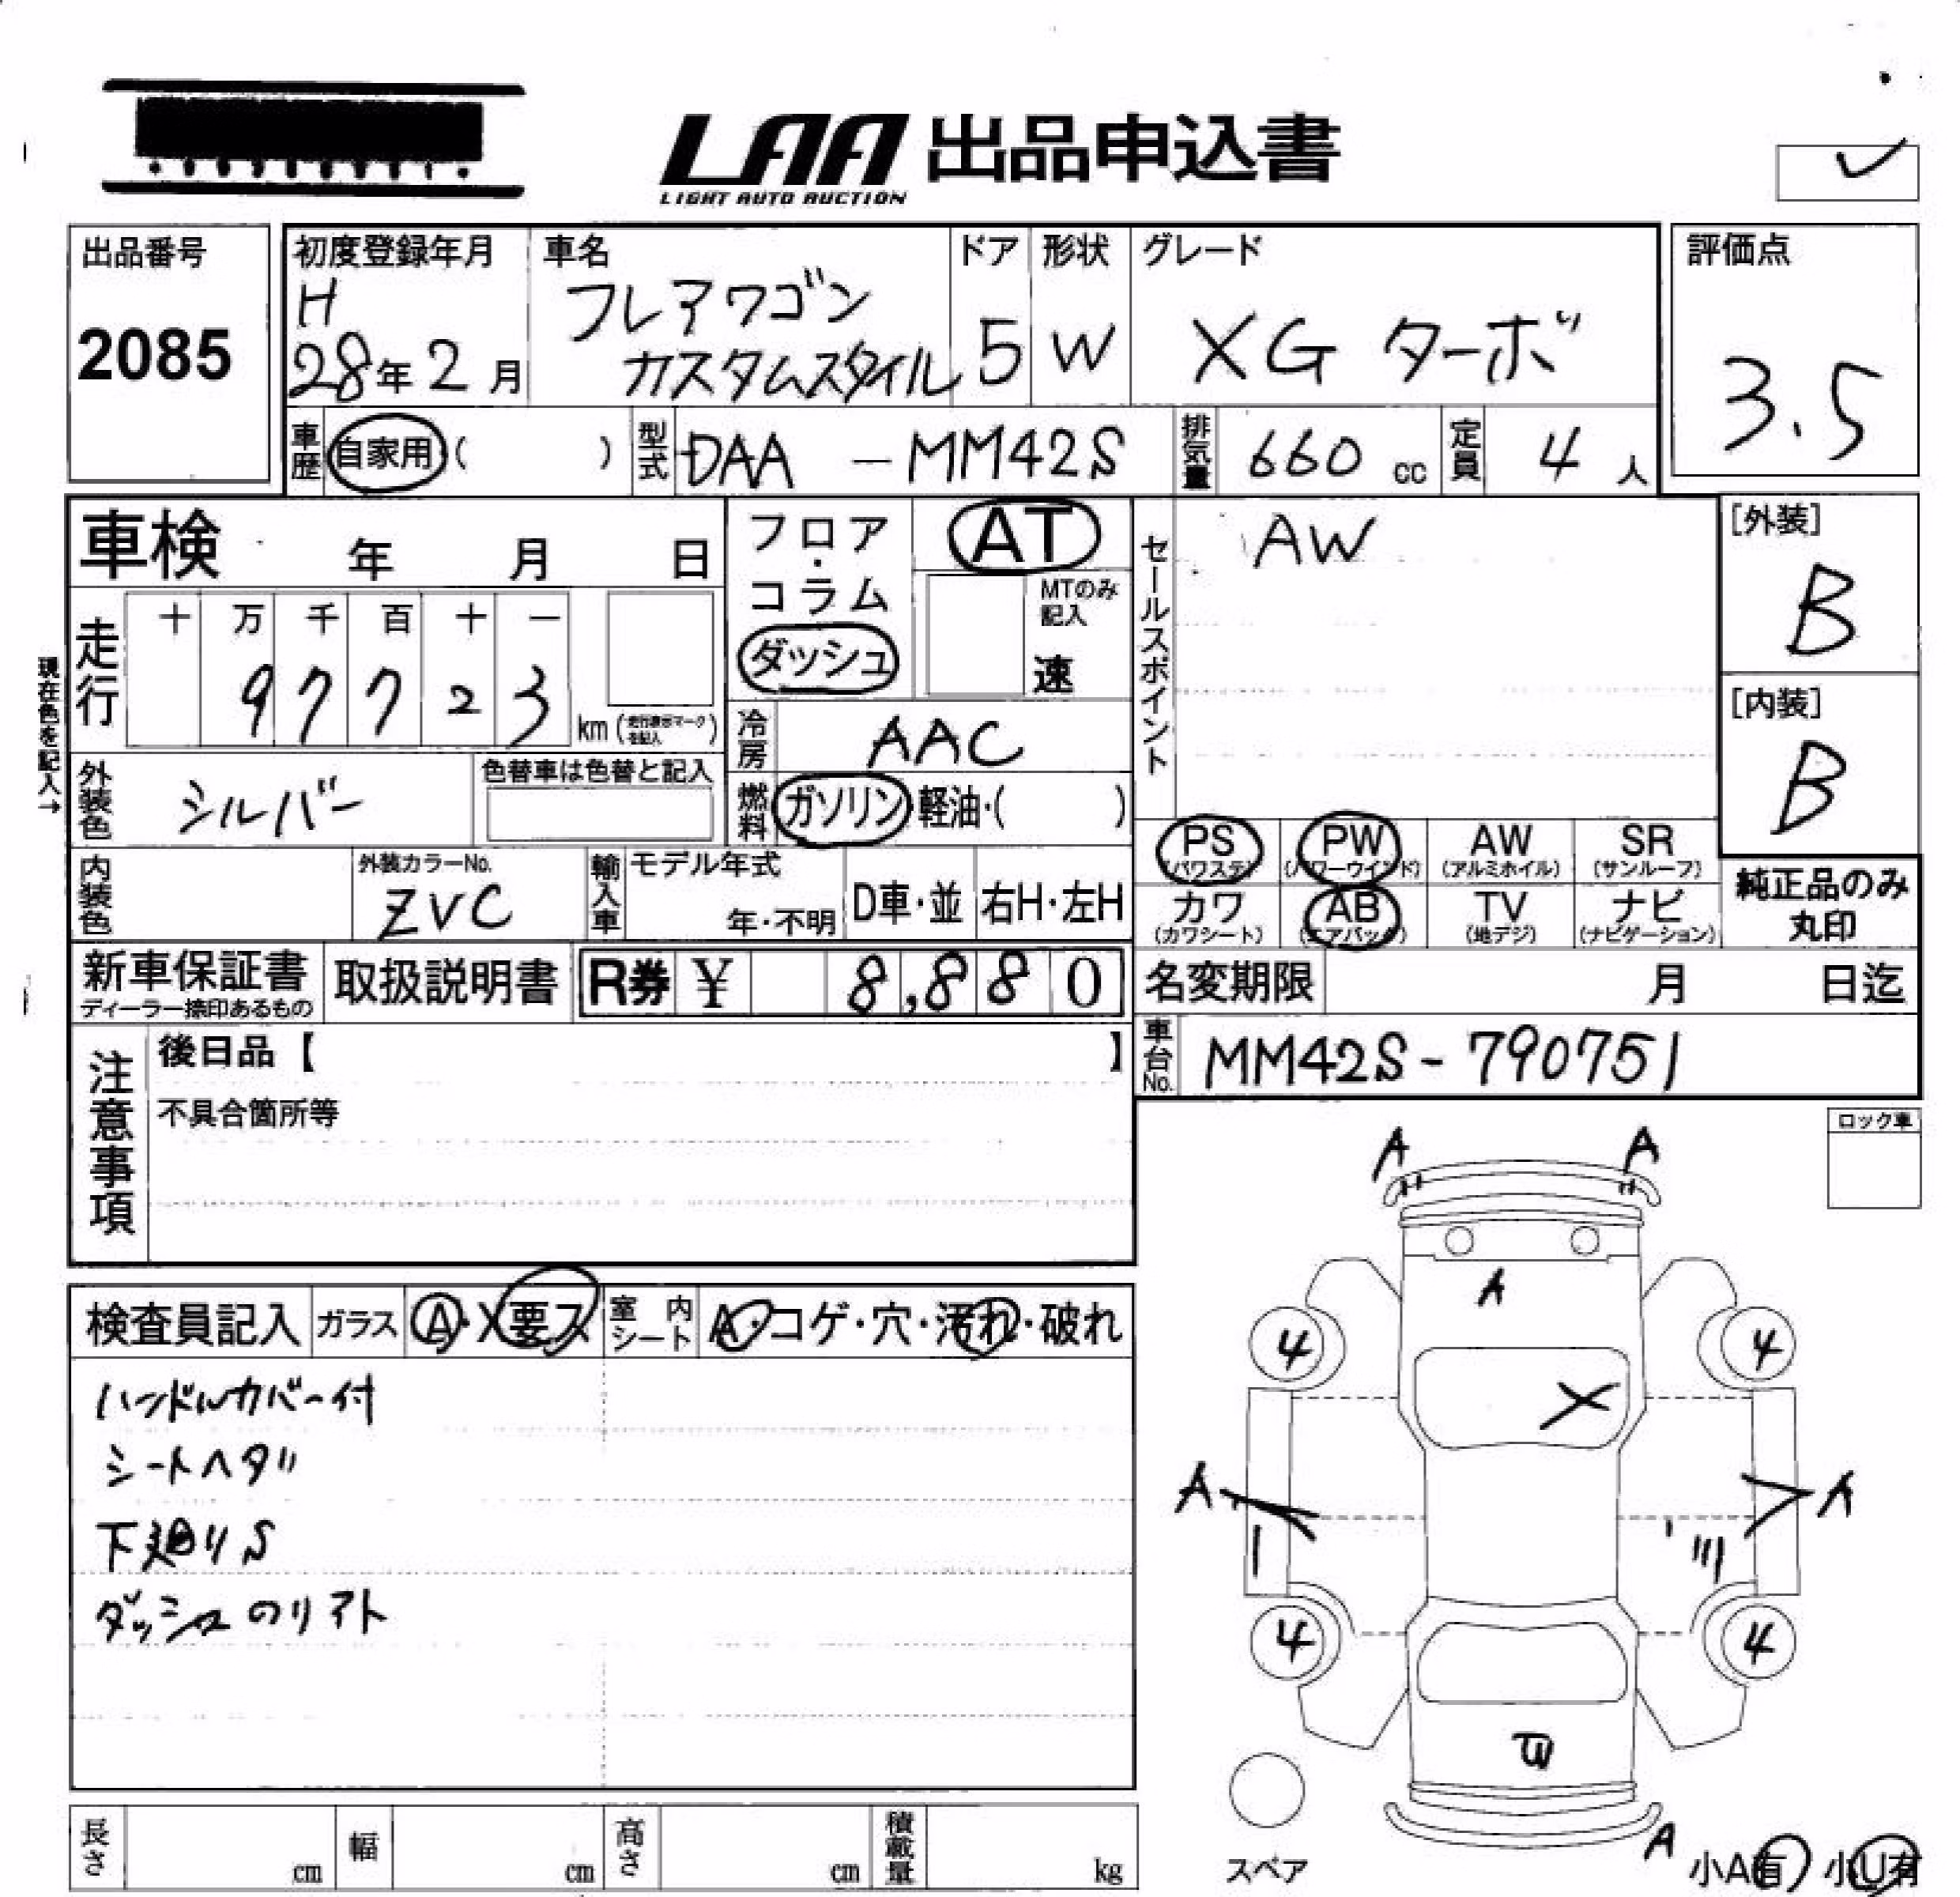 LAA 出品申込書
LIGHT AUTO AUCTION
出品番号
2085
初度登録年月
H
28年2月
車名
フレアワゴン
カスタムスタイル
ドア
5
形状
W
グレード
XG ターボ
評価点
3.5
車歴
自家用( )
型式
DAA - MM42S
排気量
660 cc
定員
4 人
車検 年 月 日
フロア・コラム
ダッシュ
AT
MTのみ記入
速
セールスポイント
AW
[外装]
B
[内装]
B
現在色を記入→
走行
十 万 千 百 十 一
9 7 7 2 3
km (走行表示マークを記入)
冷房
AAC
外装色
シルバー
色替車は色替と記入
燃料
ガソリン・軽油・( )
PS
(パワステ)
PW
(パワーウインド)
AW
(アルミホイル)
SR
(サンルーフ)
カワ
(カワシート)
AB
(エアバック)
TV
(地デジ)
ナビ
(ナビゲーション)
純正品のみ
丸印
内装色
外装カラーNo.
ZVC
輸入車
モデル年式
年・不明
D車・並
右H・左H
新車保証書
ディーラー捺印あるもの
取扱説明書
R券 ¥ 8,880
名変期限 月 日迄
車台No.
MM42S-790751
注意事項
後日品【 】
不具合箇所等
ロック車
A A
A
4 4
X
A A
4 4
A
スペア
小A有 小U有
検査員記入
ガラス
A・X要ス
室内シート
A・コゲ・穴・汚れ・破れ
ハンドルカバー付
シートヘタリ
下廻りS
ダッシュのリアト
長さ cm
幅 cm
高さ cm
積載量 kg